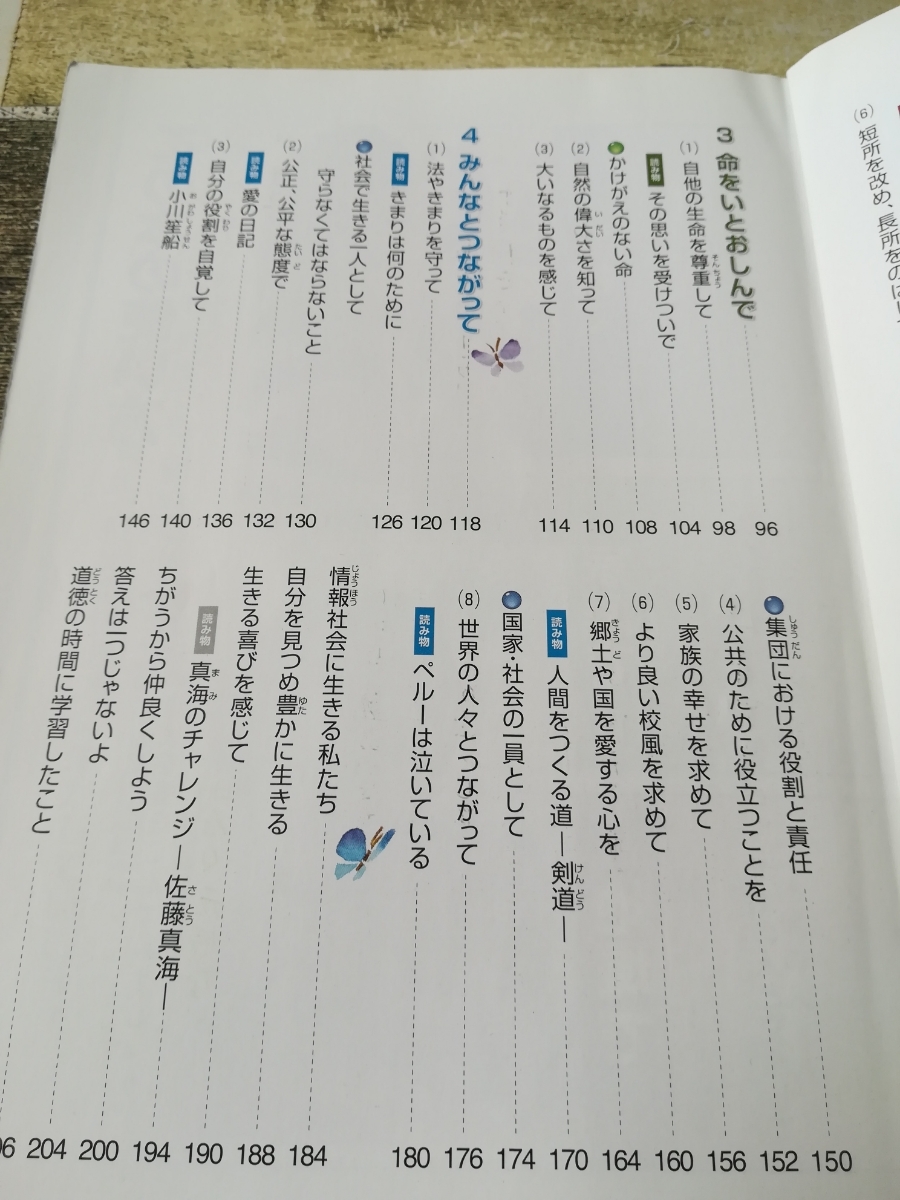 (6) 短所を改め、長所を
3 命をいとおしんで 96
(1) 自他の生命を尊重して 98
読み物 その思いを受けついで 104
かけがえのない命 108
(2) 自然の偉大さを知って 110
(3) 大いなるものを感じて 114
4 みんなとつながって 118
(1) 法やきまりを守って 120
読み物 きまりは何のために 126
社会で生きる一人として
守らなくてはならないこと 130
(2) 公正、公平な態度で 132
読み物 愛の日記 136
(3) 自分の役割を自覚して 140
読み物 小川笙船 146
集団における役割と責任 150
(4) 公共のために役立つことを 152
(5) 家族の幸せを求めて 156
(6) より良い校風を求めて 160
(7) 郷土や国を愛する心を 164
読み物 人間をつくる道―剣道― 170
国家・社会の一員として 174
(8) 世界の人々とつながって 176
読み物 ペルーは泣いている 180
情報社会に生きる私たち 184
自分を見つめ豊かに生きる 188
生きる喜びを感じて 190
読み物 真海のチャレンジ―佐藤真海― 194
ちがうから仲良くしよう 200
答えは一つじゃないよ 204
道徳の時間に学習したこと 06